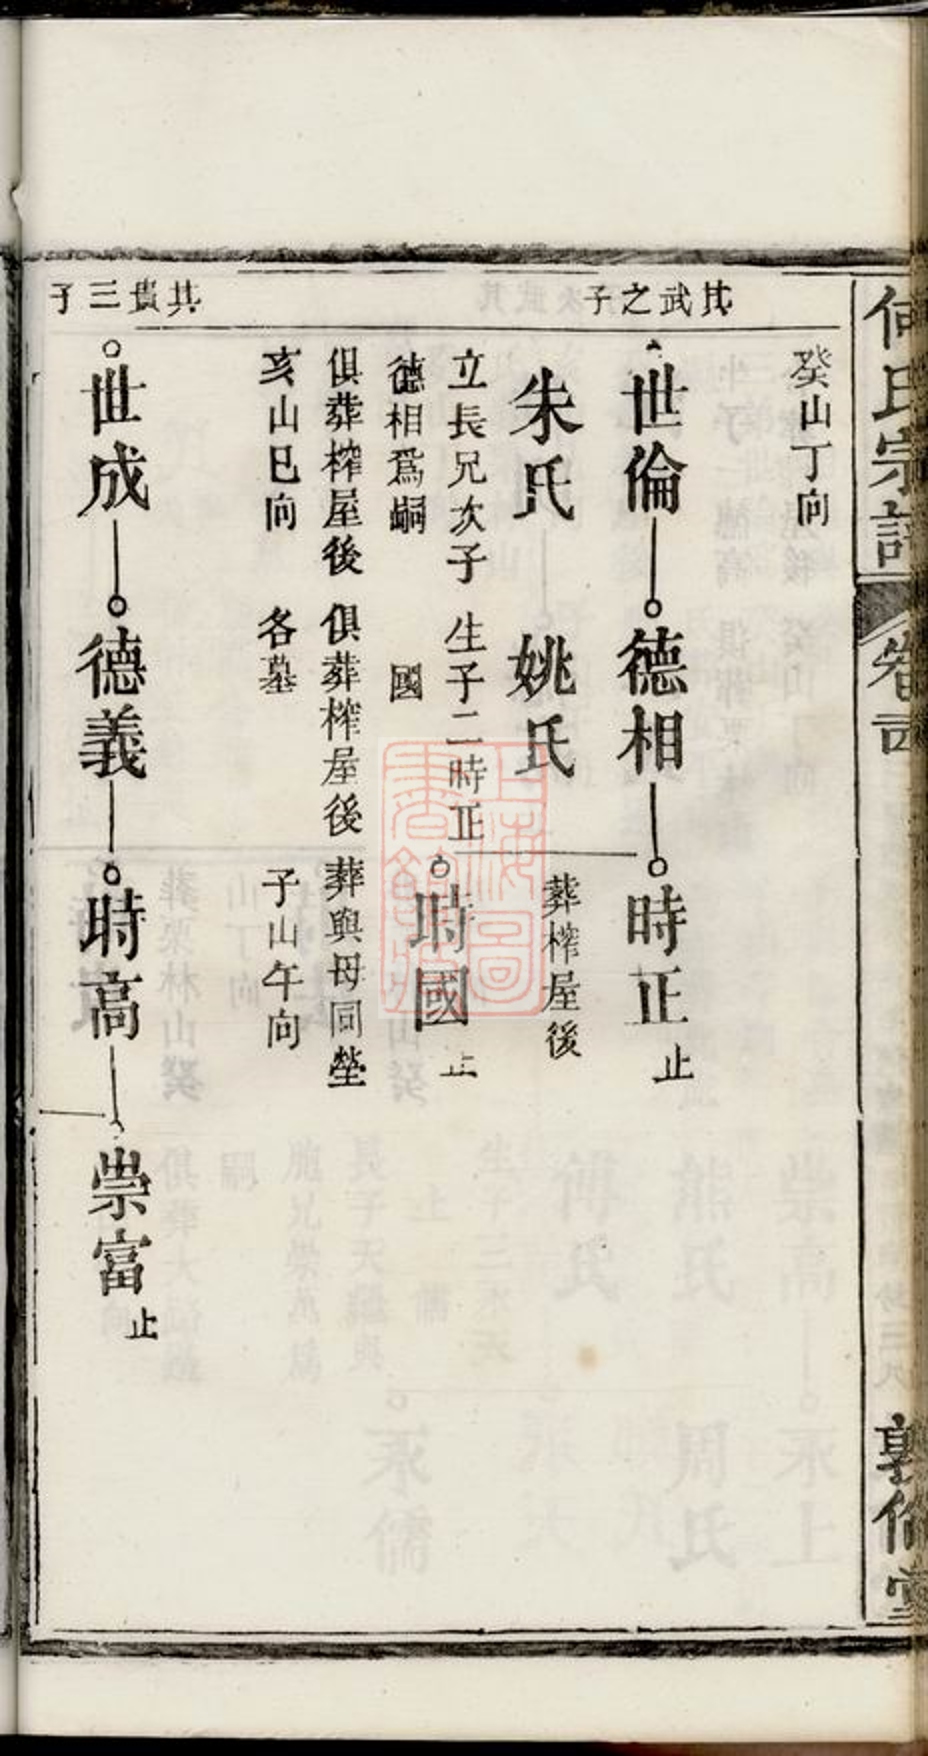 何氏宗譜
卷
敦倫堂
癸山丁向
其武之子
世倫
德相
時正
止
朱氏
姚氏
葬榨屋後
立長兄次子
德相為嗣
生子二時正
國
時國
止
俱葬榨屋後
亥山巳向
俱葬榨屋後
各墓
葬與母同塋
子山午向
其貴三子
世成
德義
時高
崇富
止
上海圖書館藏